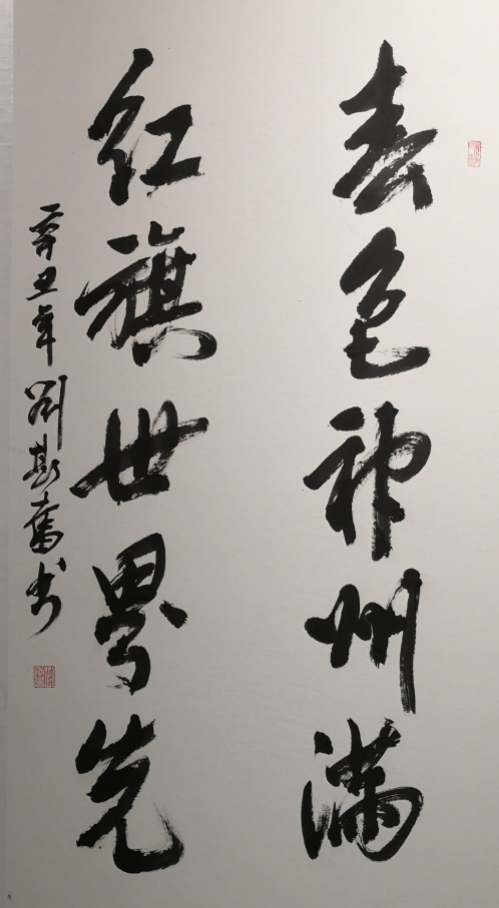 春色神州满
红旗世界先
辛丑年刘斯奮书